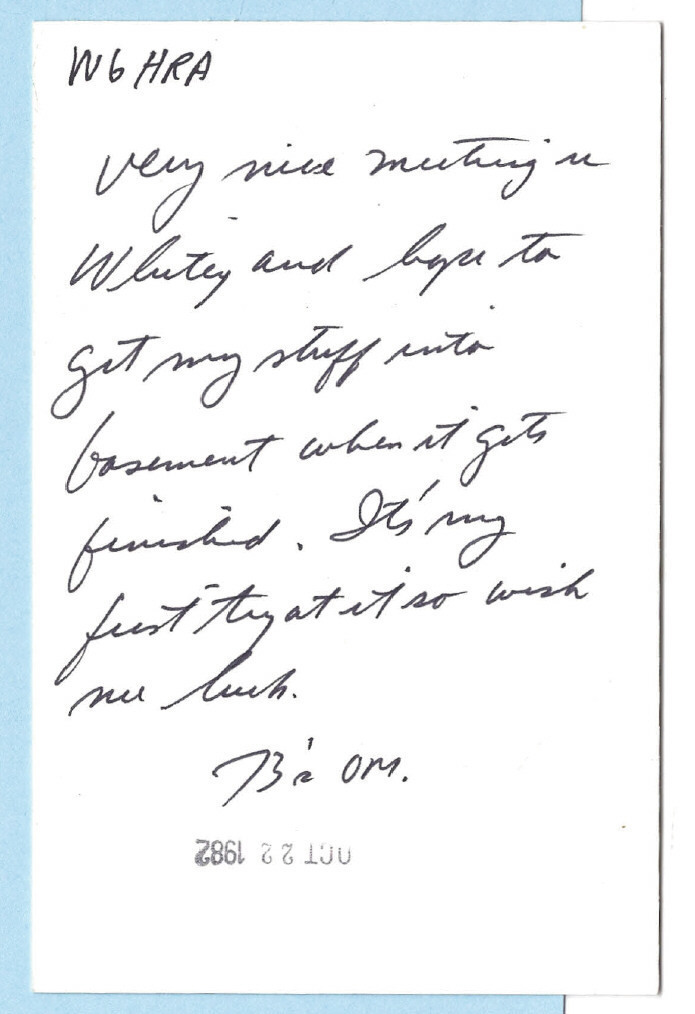 W6HRA
Very nice meeting u
Whitey and hope to
get my stuff into
basement when it gets
finished. It's my
first try at it so wish
me luck.
73's OM.
OCT 22 1982